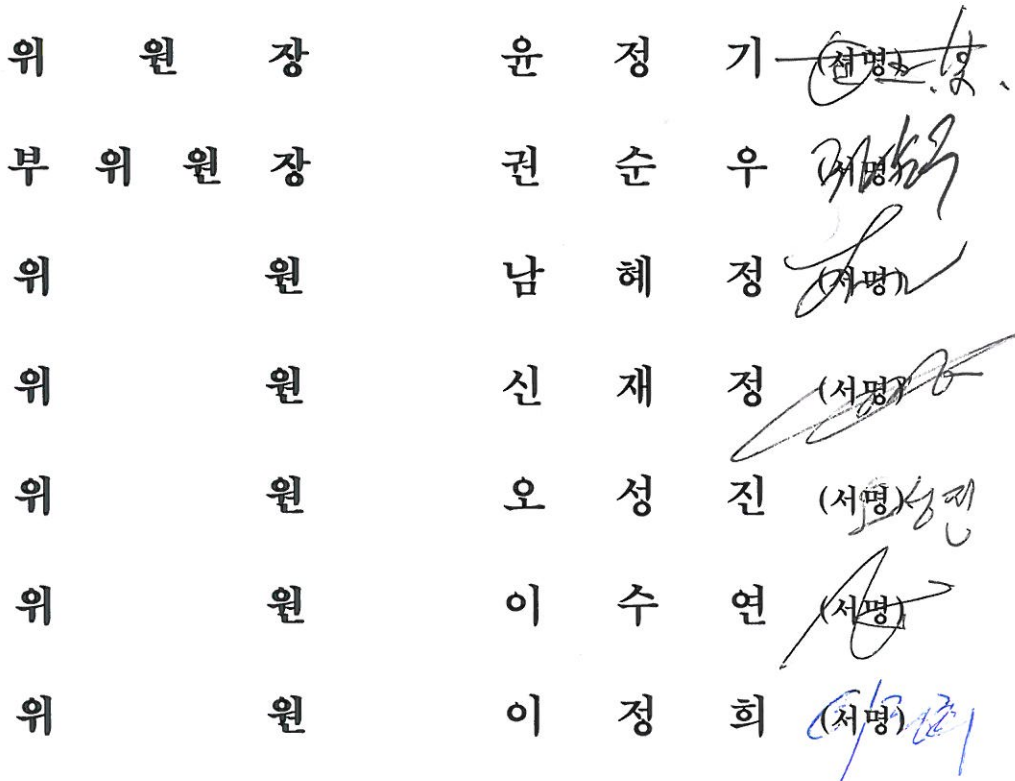 위 원 장 윤 정 기 (서명)
부 위 원 장 권 순 우 (서명)
위 원 남 혜 정 (서명)
위 원 신 재 정 (서명)
위 원 오 성 진 (서명) 오성진
위 원 이 수 연 (서명)
위 원 이 정 희 (서명) 이정희